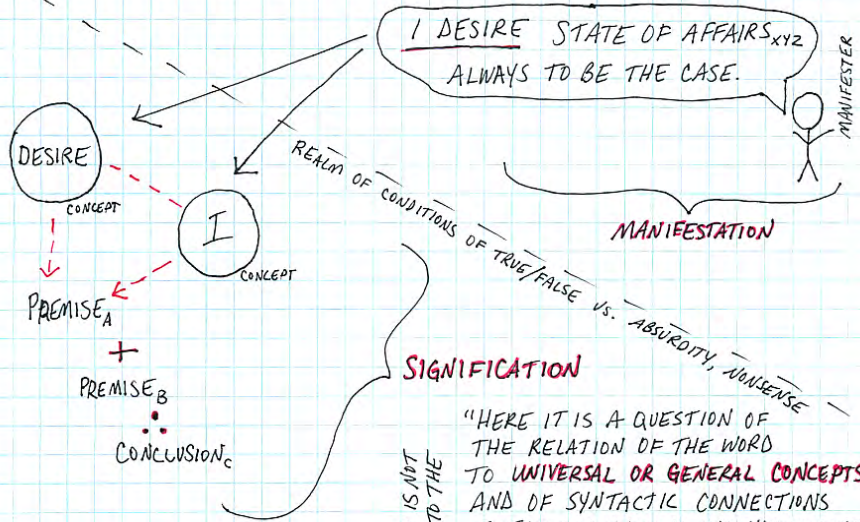 I DESIRE STATE OF AFFAIRS XYZ
ALWAYS TO BE THE CASE.
MANIFESTER
DESIRE
CONCEPT
I
CONCEPT
REALM OF CONDITIONS OF TRUE/FALSE VS. ABSURDITY, NONSENSE
MANIFESTATION
PREMISE A
+
PREMISE B
∴
CONCLUSION C
SIGNIFICATION
"HERE IT IS A QUESTION OF
THE RELATION OF THE WORD
TO UNIVERSAL OR GENERAL CONCEPTS
AND OF SYNTACTIC CONNECTIONS
IS NOT
TO THE